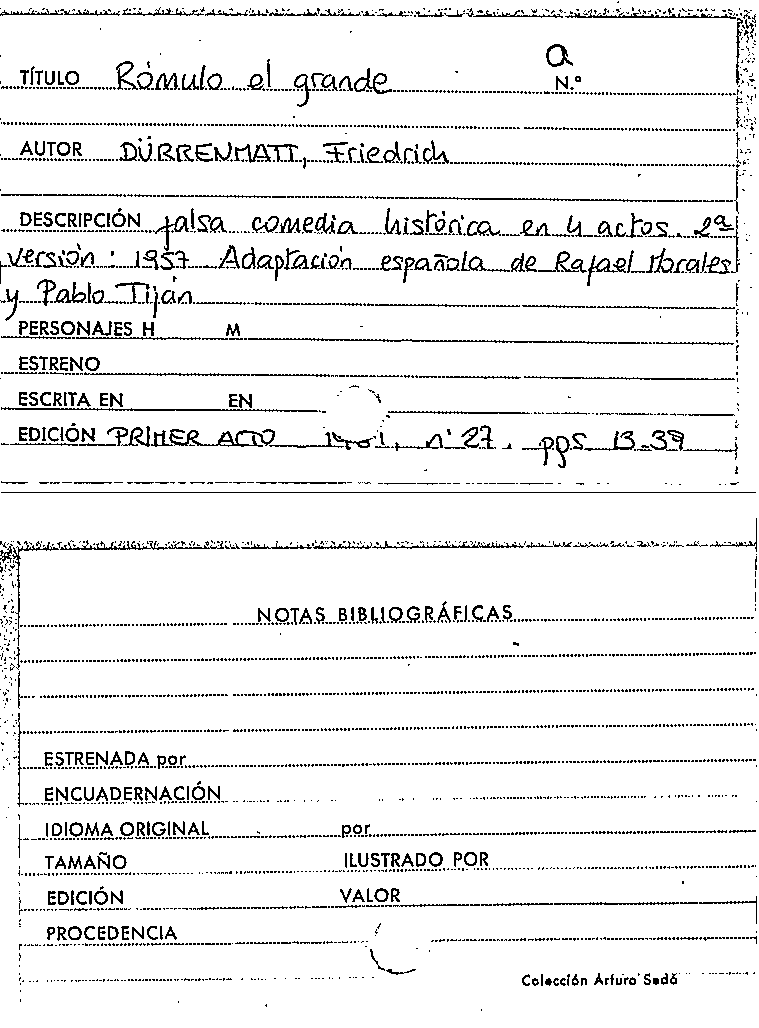 a
TÍTULO Rómulo el grande N.º
AUTOR DÜRRENMATT, Friedrich
DESCRIPCIÓN falsa comedia histórica en 4 actos. 2ª
versión: 1957 Adaptación española de Rafael Morales
y Pablo Tiján
PERSONAJES H M
ESTRENO
ESCRITA EN EN
EDICIÓN PRIMER ACTO n° 27, pgs 13-39
NOTAS BIBLIOGRÁFICAS
ESTRENADA por
ENCUADERNACIÓN
IDIOMA ORIGINAL por
TAMAÑO ILUSTRADO POR
EDICIÓN VALOR
PROCEDENCIA
Colección Arturo Sedó